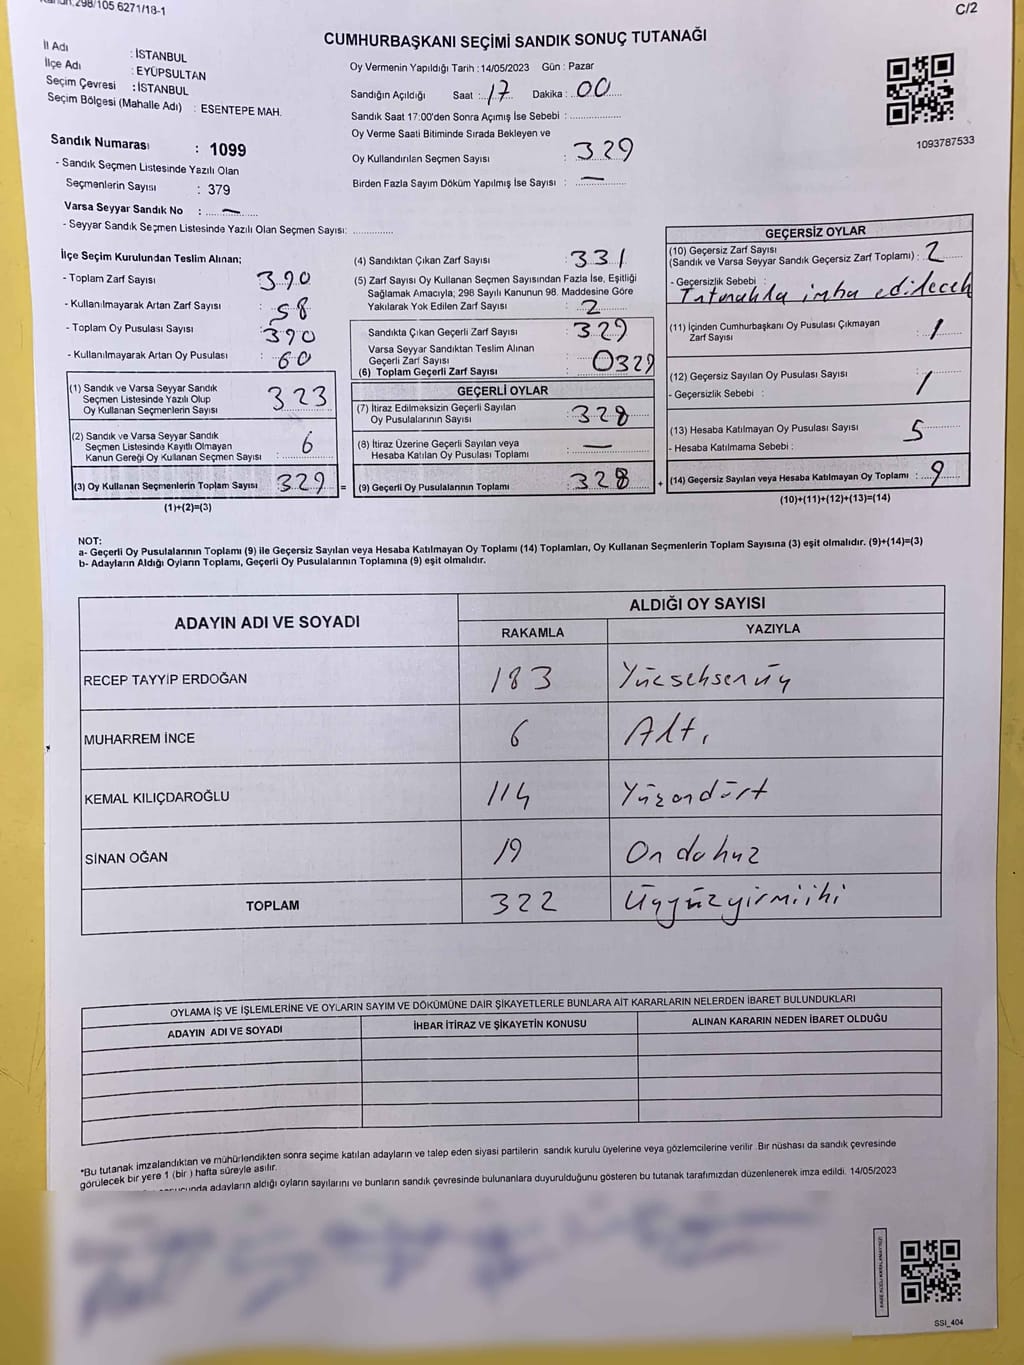 298/105 6271/18-1
C/2
CUMHURBAŞKANI SEÇİMİ SANDIK SONUÇ TUTANAĞI
İl Adı : İSTANBUL
İlçe Adı : EYÜPSULTAN
Seçim Çevresi : İSTANBUL
Seçim Bölgesi (Mahalle Adı) : ESENTEPE MAH.
Oy Vermenin Yapıldığı Tarih : 14/05/2023 Gün : Pazar
Sandığın Açıldığı Saat : 17 Dakika : 00
Sandık Saat 17:00'den Sonra Açımış İse Sebebi :
Oy Verme Saati Bitiminde Sırada Bekleyen ve
Oy Kullandırılan Seçmen Sayısı : 329
Birden Fazla Sayım Döküm Yapılmış İse Sayısı : —
1093787533
Sandık Numarası : 1099
- Sandık Seçmen Listesinde Yazılı Olan
Seçmenlerin Sayısı : 379
Varsa Seyyar Sandık No : —
- Seyyar Sandık Seçmen Listesinde Yazılı Olan Seçmen Sayısı:
İlçe Seçim Kurulundan Teslim Alınan;
- Toplam Zarf Sayısı : 390
- Kullanılmayarak Artan Zarf Sayısı : 58
- Toplam Oy Pusulası Sayısı : 390
- Kullanılmayarak Artan Oy Pusulası : 60
(1) Sandık ve Varsa Seyyar Sandık
Seçmen Listesinde Yazılı Olup
Oy Kullanan Seçmenlerin Sayısı : 323
(2) Sandık ve Varsa Seyyar Sandık
Seçmen Listesinde Kayıtlı Olmayan
Kanun Gereği Oy Kullanan Seçmen Sayısı : 6
(3) Oy Kullanan Seçmenlerin Toplam Sayısı : 329 =
(1)+(2)=(3)
(4) Sandıktan Çıkan Zarf Sayısı : 331
(5) Zarf Sayısı Oy Kullanan Seçmen Sayısından Fazla İse, Eşitliği
Sağlamak Amacıyla; 298 Sayılı Kanunun 98. Maddesine Göre
Yakılarak Yok Edilen Zarf Sayısı : 2
Sandıkta Çıkan Geçerli Zarf Sayısı : 329
Varsa Seyyar Sandıktan Teslim Alınan
Geçerli Zarf Sayısı : 0
(6) Toplam Geçerli Zarf Sayısı : 329
GEÇERLİ OYLAR
(7) İtiraz Edilmeksizin Geçerli Sayılan
Oy Pusulalarının Sayısı : 328
(8) İtiraz Üzerine Geçerli Sayılan veya
Hesaba Katılan Oy Pusulası Toplamı : —
(9) Geçerli Oy Pusulalarının Toplamı : 328 +
GEÇERSİZ OYLAR
(10) Geçersiz Zarf Sayısı
(Sandık ve Varsa Seyyar Sandık Geçersiz Zarf Toplamı) : 2
- Geçersizlik Sebebi :
Tutanakla imha edilecek
(11) İçinden Cumhurbaşkanı Oy Pusulası Çıkmayan
Zarf Sayısı : 1
(12) Geçersiz Sayılan Oy Pusulası Sayısı : 1
- Geçersizlik Sebebi :
(13) Hesaba Katılmayan Oy Pusulası Sayısı : 5
- Hesaba Katılmama Sebebi :
(14) Geçersiz Sayılan veya Hesaba Katılmayan Oy Toplamı : 9
(10)+(11)+(12)+(13)=(14)
NOT:
a- Geçerli Oy Pusulalarının Toplamı (9) ile Geçersiz Sayılan veya Hesaba Katılmayan Oy Toplamı (14) Toplamları, Oy Kullanan Seçmenlerin Toplam Sayısına (3) eşit olmalıdır. (9)+(14)=(3)
b- Adayların Aldığı Oyların Toplamı, Geçerli Oy Pusulalarının Toplamına (9) eşit olmalıdır.
ADAYIN ADI VE SOYADI
ALDIĞI OY SAYISI
RAKAMLA YAZIYLA
RECEP TAYYİP ERDOĞAN 183 Yücseksenüç
MUHARREM İNCE 6 Altı
KEMAL KILIÇDAROĞLU 114 Yüzondört
SİNAN OĞAN 19 On dokuz
TOPLAM 322 Üçyüzyirmiiki
OYLAMA İŞ VE İŞLEMLERİNE VE OYLARIN SAYIM VE DÖKÜMÜNE DAİR ŞİKAYETLERLE BUNLARA AİT KARARLARIN NELERDEN İBARET BULUNDUKLARI
ADAYIN ADI VE SOYADI İHBAR İTİRAZ VE ŞİKAYETİN KONUSU ALINAN KARARIN NEDEN İBARET OLDUĞU
*Bu tutanak imzalandıktan ve mühürlendikten sonra seçime katılan adayların ve talep eden siyasi partilerin sandık kurulu üyelerine veya gözlemcilerine verilir. Bir nüshası da sandık çevresinde
görülecek bir yere 1 (bir ) hafta süreyle asılır.
adayların aldığı oyların sayılarını ve bunların sandık çevresinde bulunanlara duyurulduğunu gösteren bu tutanak tarafımızdan düzenlenerek imza edildi. 14/05/2023
SSI_404